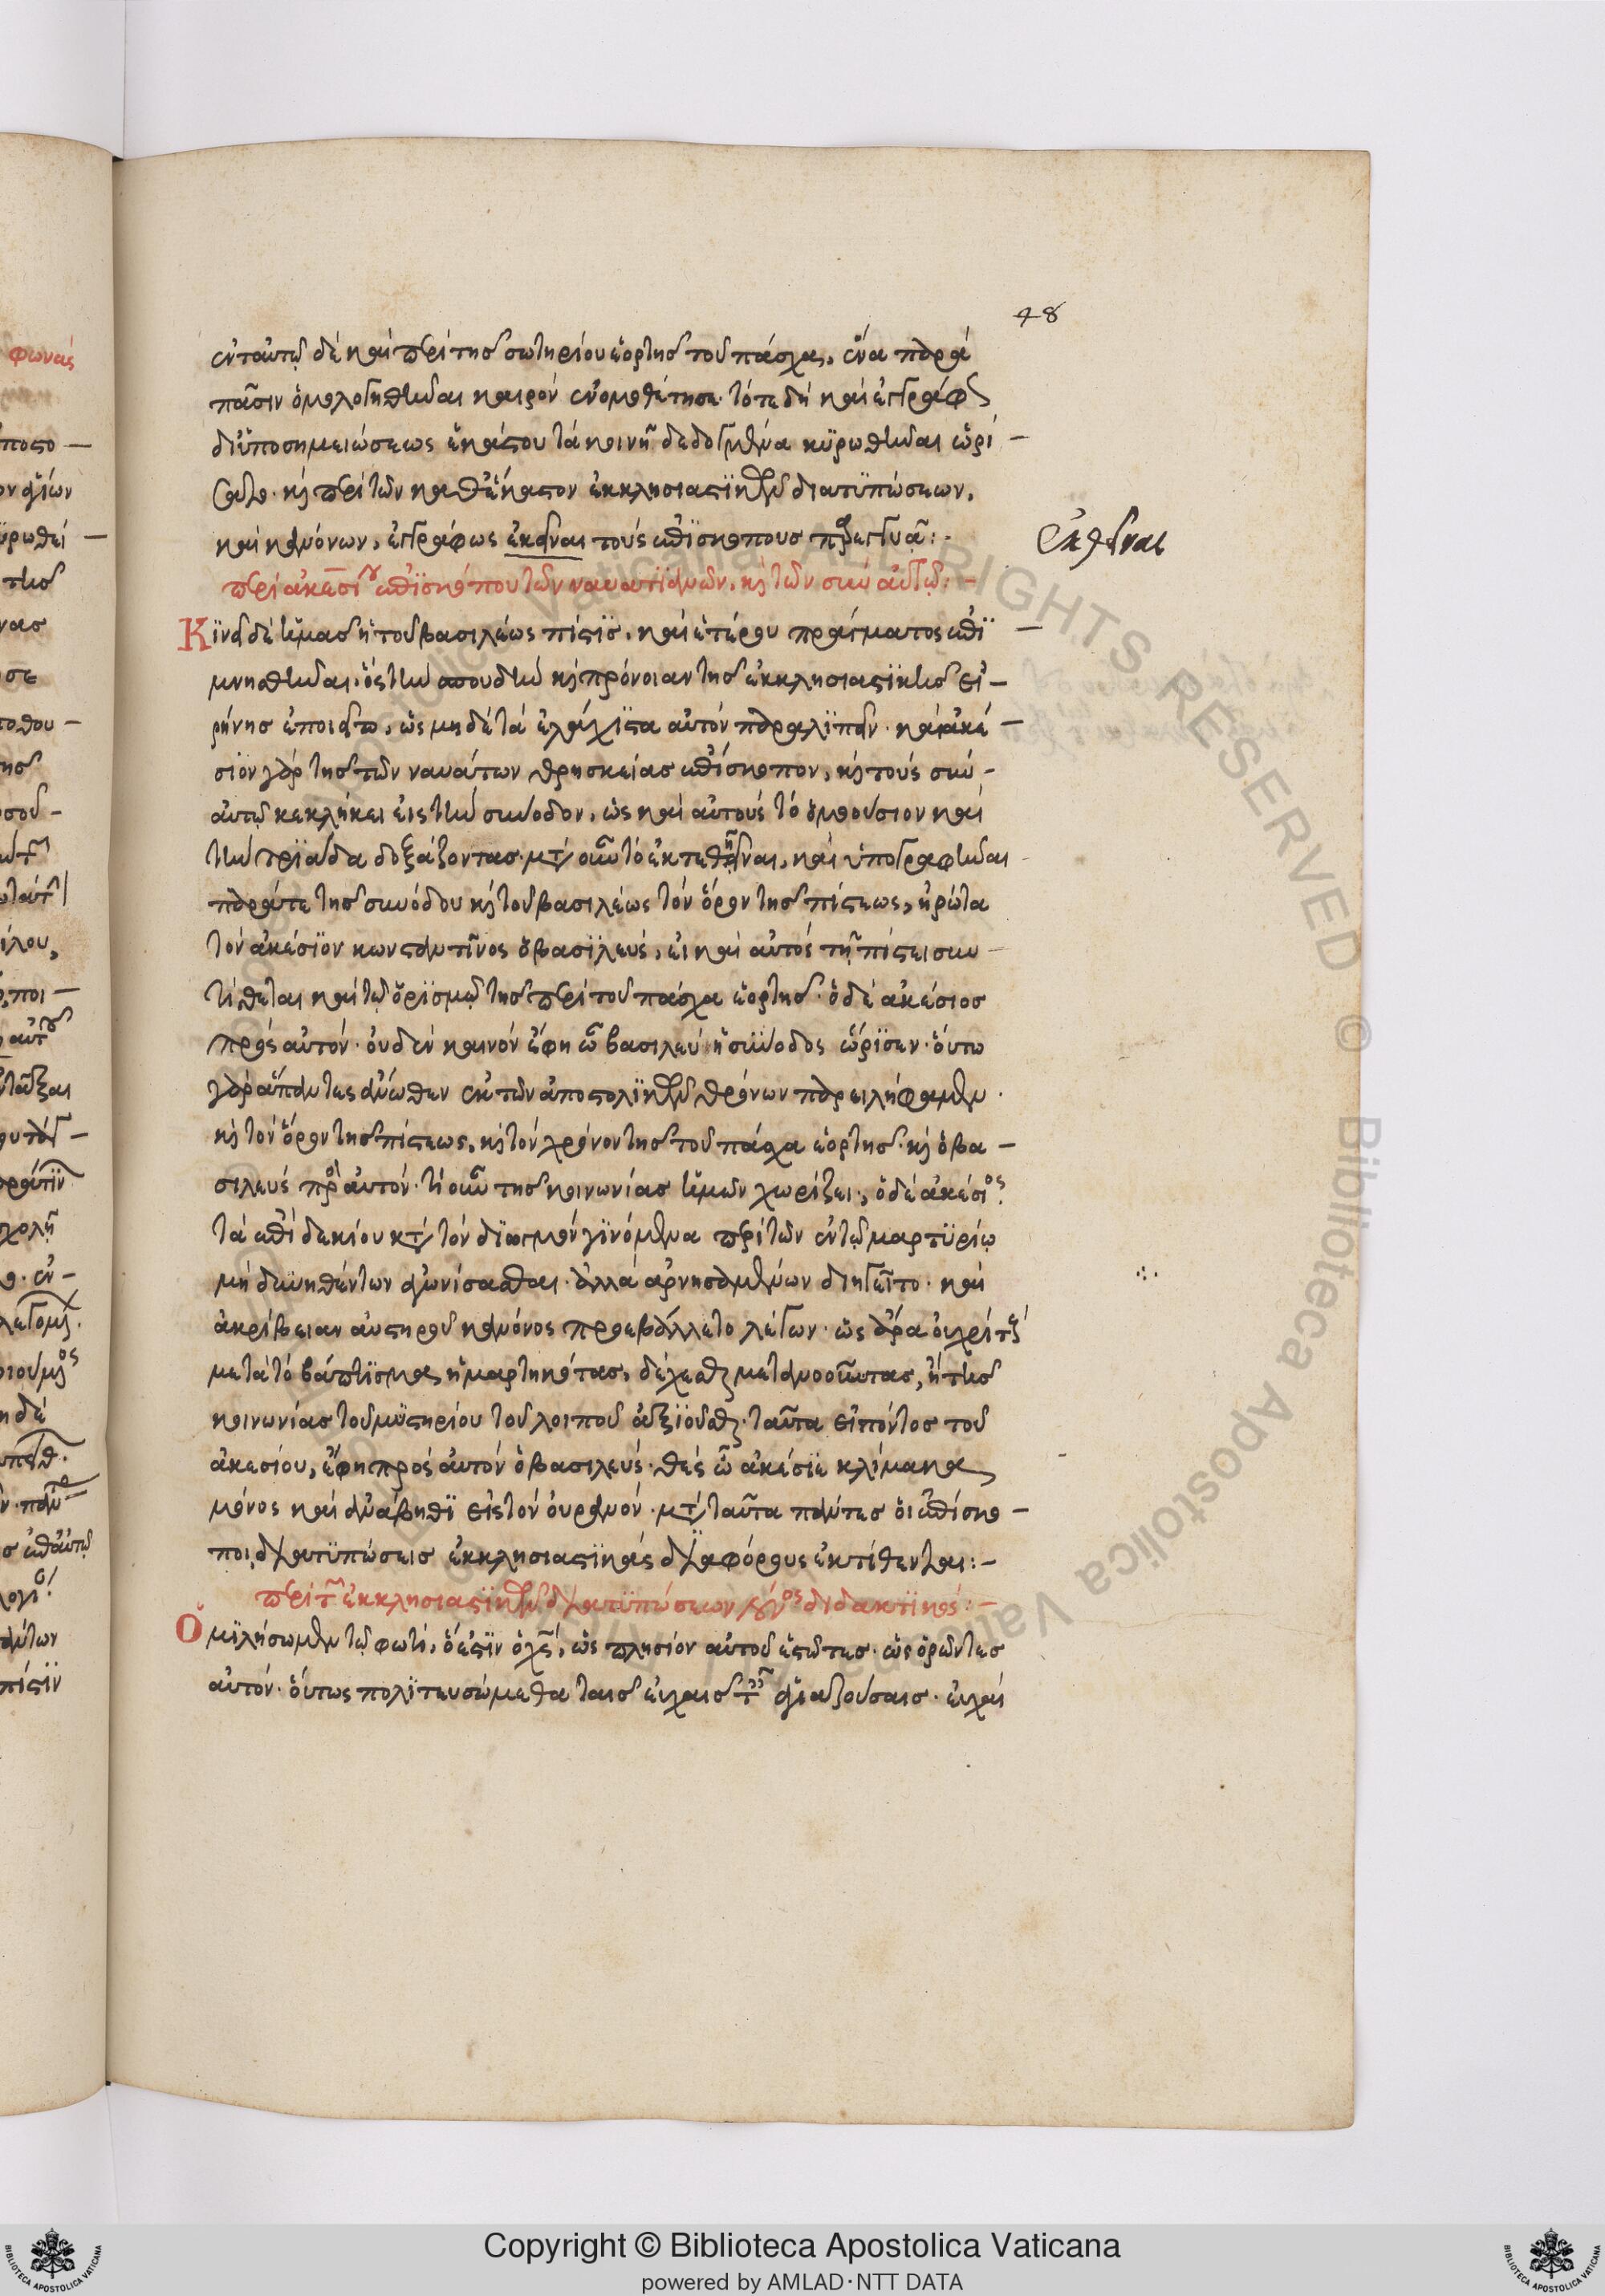 48
ἐν ταυτῷ δὲ καὶ περὶ τῆς σωτηρίου ἑορτῆς τοῦ πάσχα, ἕνα παρὰ
πᾶσιν ὁμολογηθῆναι καιρὸν ἐνομοθέτησε· τότε δὴ καὶ ἐγράφ
δι ὑποσημειώσεως ἑκάστου τὰ κοινῇ δεδογμένα κυρωθῆναι ὡρί –
σατο· κ περὶ τῶν καθ ἕκαστον ἐκκλησιαστικῶν διατυπώσεων,
καὶ κανόνων, ἐγράφως ἐκθναι τοὺς ἐπισκόπους :-
ἐκθεῖναι
περὶ ἀκεσίου ἐπισκόπου τῶν ναυατιανῶν, κ τῶν σὺν αὐτῷ :–
Κινεῖ δὲ ἡμᾶς ἡ τοῦ βασιλέως πίστις, καὶ ἑτέρου πράγματος ἐπι –
μνησθῆναι. ὅς τὴν σπουδὴν κ πρόνοιαν τῆς ἐκκλησιαστικῆς εἰ –
ρήνης ἐποιεῖτο, ὡς μηδὲ τὰ ἐλάχιστα αὐτὸν παραλιπεῖν· καὶ ἀκέ –
σιον γὰρ τῆς τῶν ναυάτων θρησκείας ἐπίσκοπον, κ τοὺς σὺν –
αὐτῷ κεκλήκει εἰς τὴν σύνοδον, ὡς καὶ αὐτοὺς τὸ ὁμοούσιον καὶ
τὴν τριάδα δοξάζοντας· μετὰ οὖν τὸ ἐκτεθῆναι, καὶ ὑπογραφῆναι
παρά τε τῆς συνόδου κ τοῦ βασιλέως τὸν ὅρον τῆς πίστεως, ἠρώτα
τὸν ἀκέσιον κωνσταντῖνος ὁ βασιλεύς, εἰ καὶ αὐτὸς τῇ πίστει συν –
τίθεται καὶ τῷ ὁρισμῷ τῆς περὶ τοῦ πάσχα ἑορτῆς· ὁ δὲ ἀκέσιος
πρὸς αὐτόν· οὐδὲν καινὸν ἔφη ὦ βασιλεῦ ἡ σύνοδος ὥρισεν· οὕτω
γὰρ ἅπαντες ἄνωθεν ἐκ τῶν ἀποστολικῶν θρόνων παρειλήφαμεν.
κ τὸν ὅρον τῆς πίστεως, κ τὸν χρόνον τῆς τοῦ πάσχα ἑορτῆς· κ ὁ βα –
σιλεὺς πρὸς αὐτόν· τί οὖν τῆς κοινωνίας ἡμῶν χωρίζει, ὁ δὲ ἀκέσιος
τὰ ἐπὶ δεκίου κατὰ τὸν διωγμὸν γινόμενα περὶ τῶν ἐν τῷ μαρτυρίῳ
μὴ δυνηθέντων ἀγωνίσασθαι· ἀλλὰ ἀρνησαμένων διηγεῖτο· καὶ
ἀκρίβειαν αὐστηροῦ κανόνος προεβάλλετο λέγων· ὡς ἄρα οὐ χρὴ τοὺς
μετὰ τὸ βάπτισμα ἡμαρτηκότας, δέχεσθαι μετανοοῦντας, ἢ τῆς
κοινωνίας τοῦ μυστηρίου τοῦ λοιποῦ ἀξιοῦσθαι· ταῦτα εἰπόντος τοῦ
ἀκεσίου, ἔφη πρὸς αὐτὸν ὁ βασιλεύς· θὲς ὦ ἀκέσιε κλίμακα
μόνος καὶ ἀνάβηθι εἰς τὸν οὐρανόν· μετὰ ταῦτα πάντες οἱ ἐπίσκο –
ποι, διατυπώσεις ἐκκλησιαστικὰς διαφόρους ἐκτίθενται :–
περὶ τῶν ἐκκλησιαστικῶν διατυπώσεων λόγος διδακτικός :–
Ὁμιλήσωμεν τῷ φωτί, ὅ ἐστιν ὁ χς, ὡς πλησίον αὐτοῦ ἑστῶτες· ὡς ὁρῶντες
αὐτόν· οὕτως πολιτευσώμεθα ταῖς εὐχαῖς ἁγιαζούσαις· εὐχαὶ
Copyright © Biblioteca Apostolica Vaticana
powered by AMLAD·NTT DATA